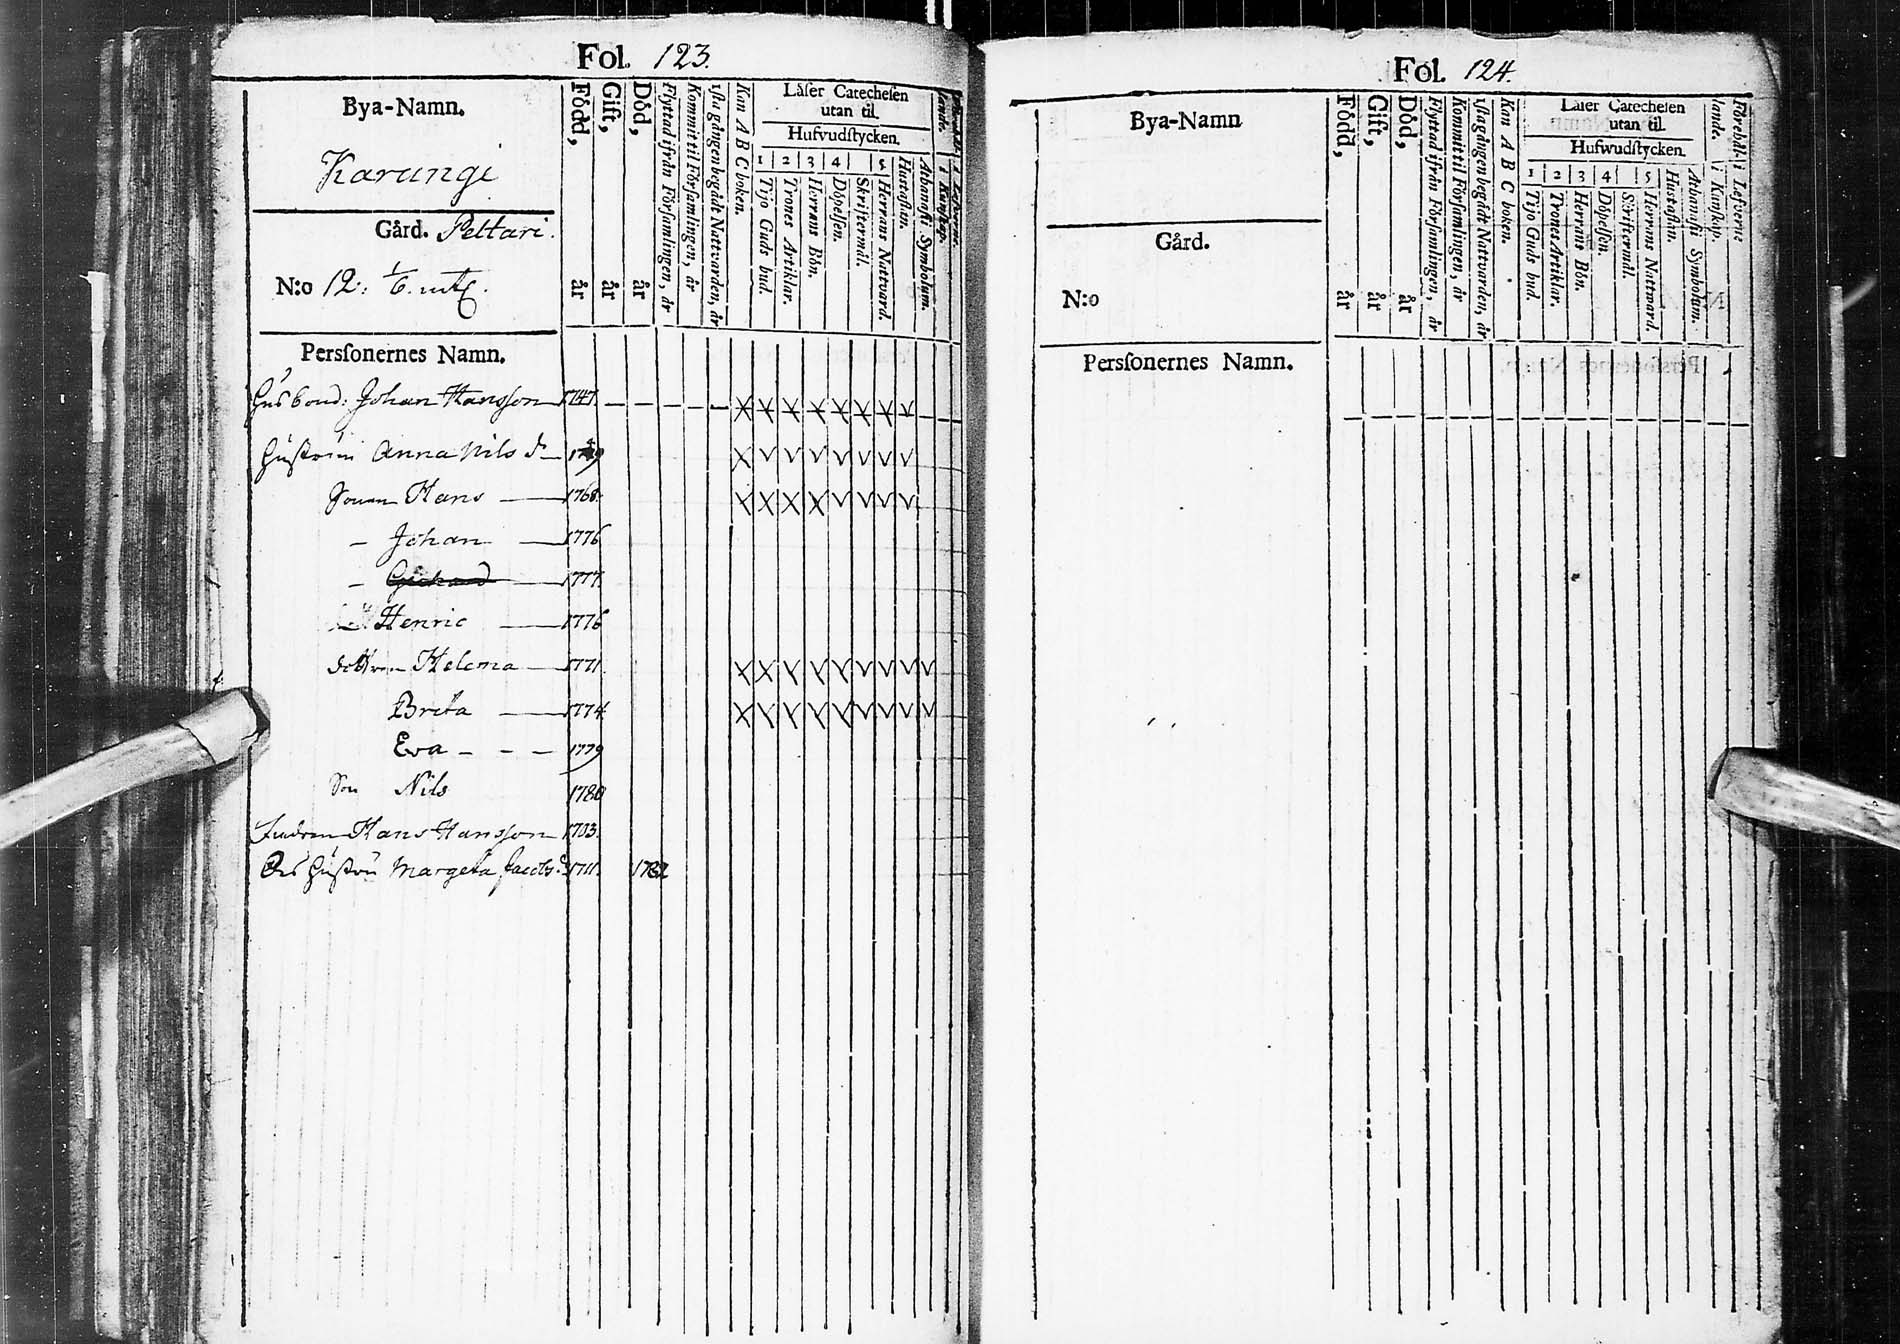 Fol. 123.
Bya-Namn.
Karungi
Gård. Pettari.
N:o 12: 1/6. mtl.
Född, år
Gift, år
Död, år
Flyttad ifrån Församlingen, år
Kommit til Församlingen, år
1sta gången begådt Nattvarden, år
Kan A B C boken.
Läser Catechesen
utan til.
Hufvudstycken.
1 2 3 4 5
Tijo Guds bud.
Trones Artiklar.
Herrans Bön.
Döpelsen.
Skriftermål.
Herrans Nattvard.
Hustaflan.
Athanasii Symbolum.
i Kunskap.
i Lefverne.
Personernes Namn.
Husbond: Johan Hansson 1747.
Hustrun Anna Nils dr 1749
Sonen Hans 1768.
Johan 1776
1777.
Henric 1776
dottren Helena 1771.
Brita 1774
Eva 1779
Son Nils 1780
Hans Hansson 1703.
Des Hustru Margeta Jacobs d. 1711. 1782
Fol. 124.
Bya-Namn
Gård.
N:o
Född, år
Gift, år
Död, år
Flyttad ifrån Församlingen, år
Kommit til Församlingen, år
1sta gången begådt Nattvarden, år
Kan A B C boken.
Läser Catechesen
utan til.
Hufwudstycken.
1 2 3 4 5
Tijo Guds bud.
Trones Artiklar.
Herrans Bön.
Döpelsen.
Skriftermål.
Herrans Nattward.
Hustaflan.
Athanasii Symbolum.
i Kunskap.
i Lefverne
Personernes Namn.